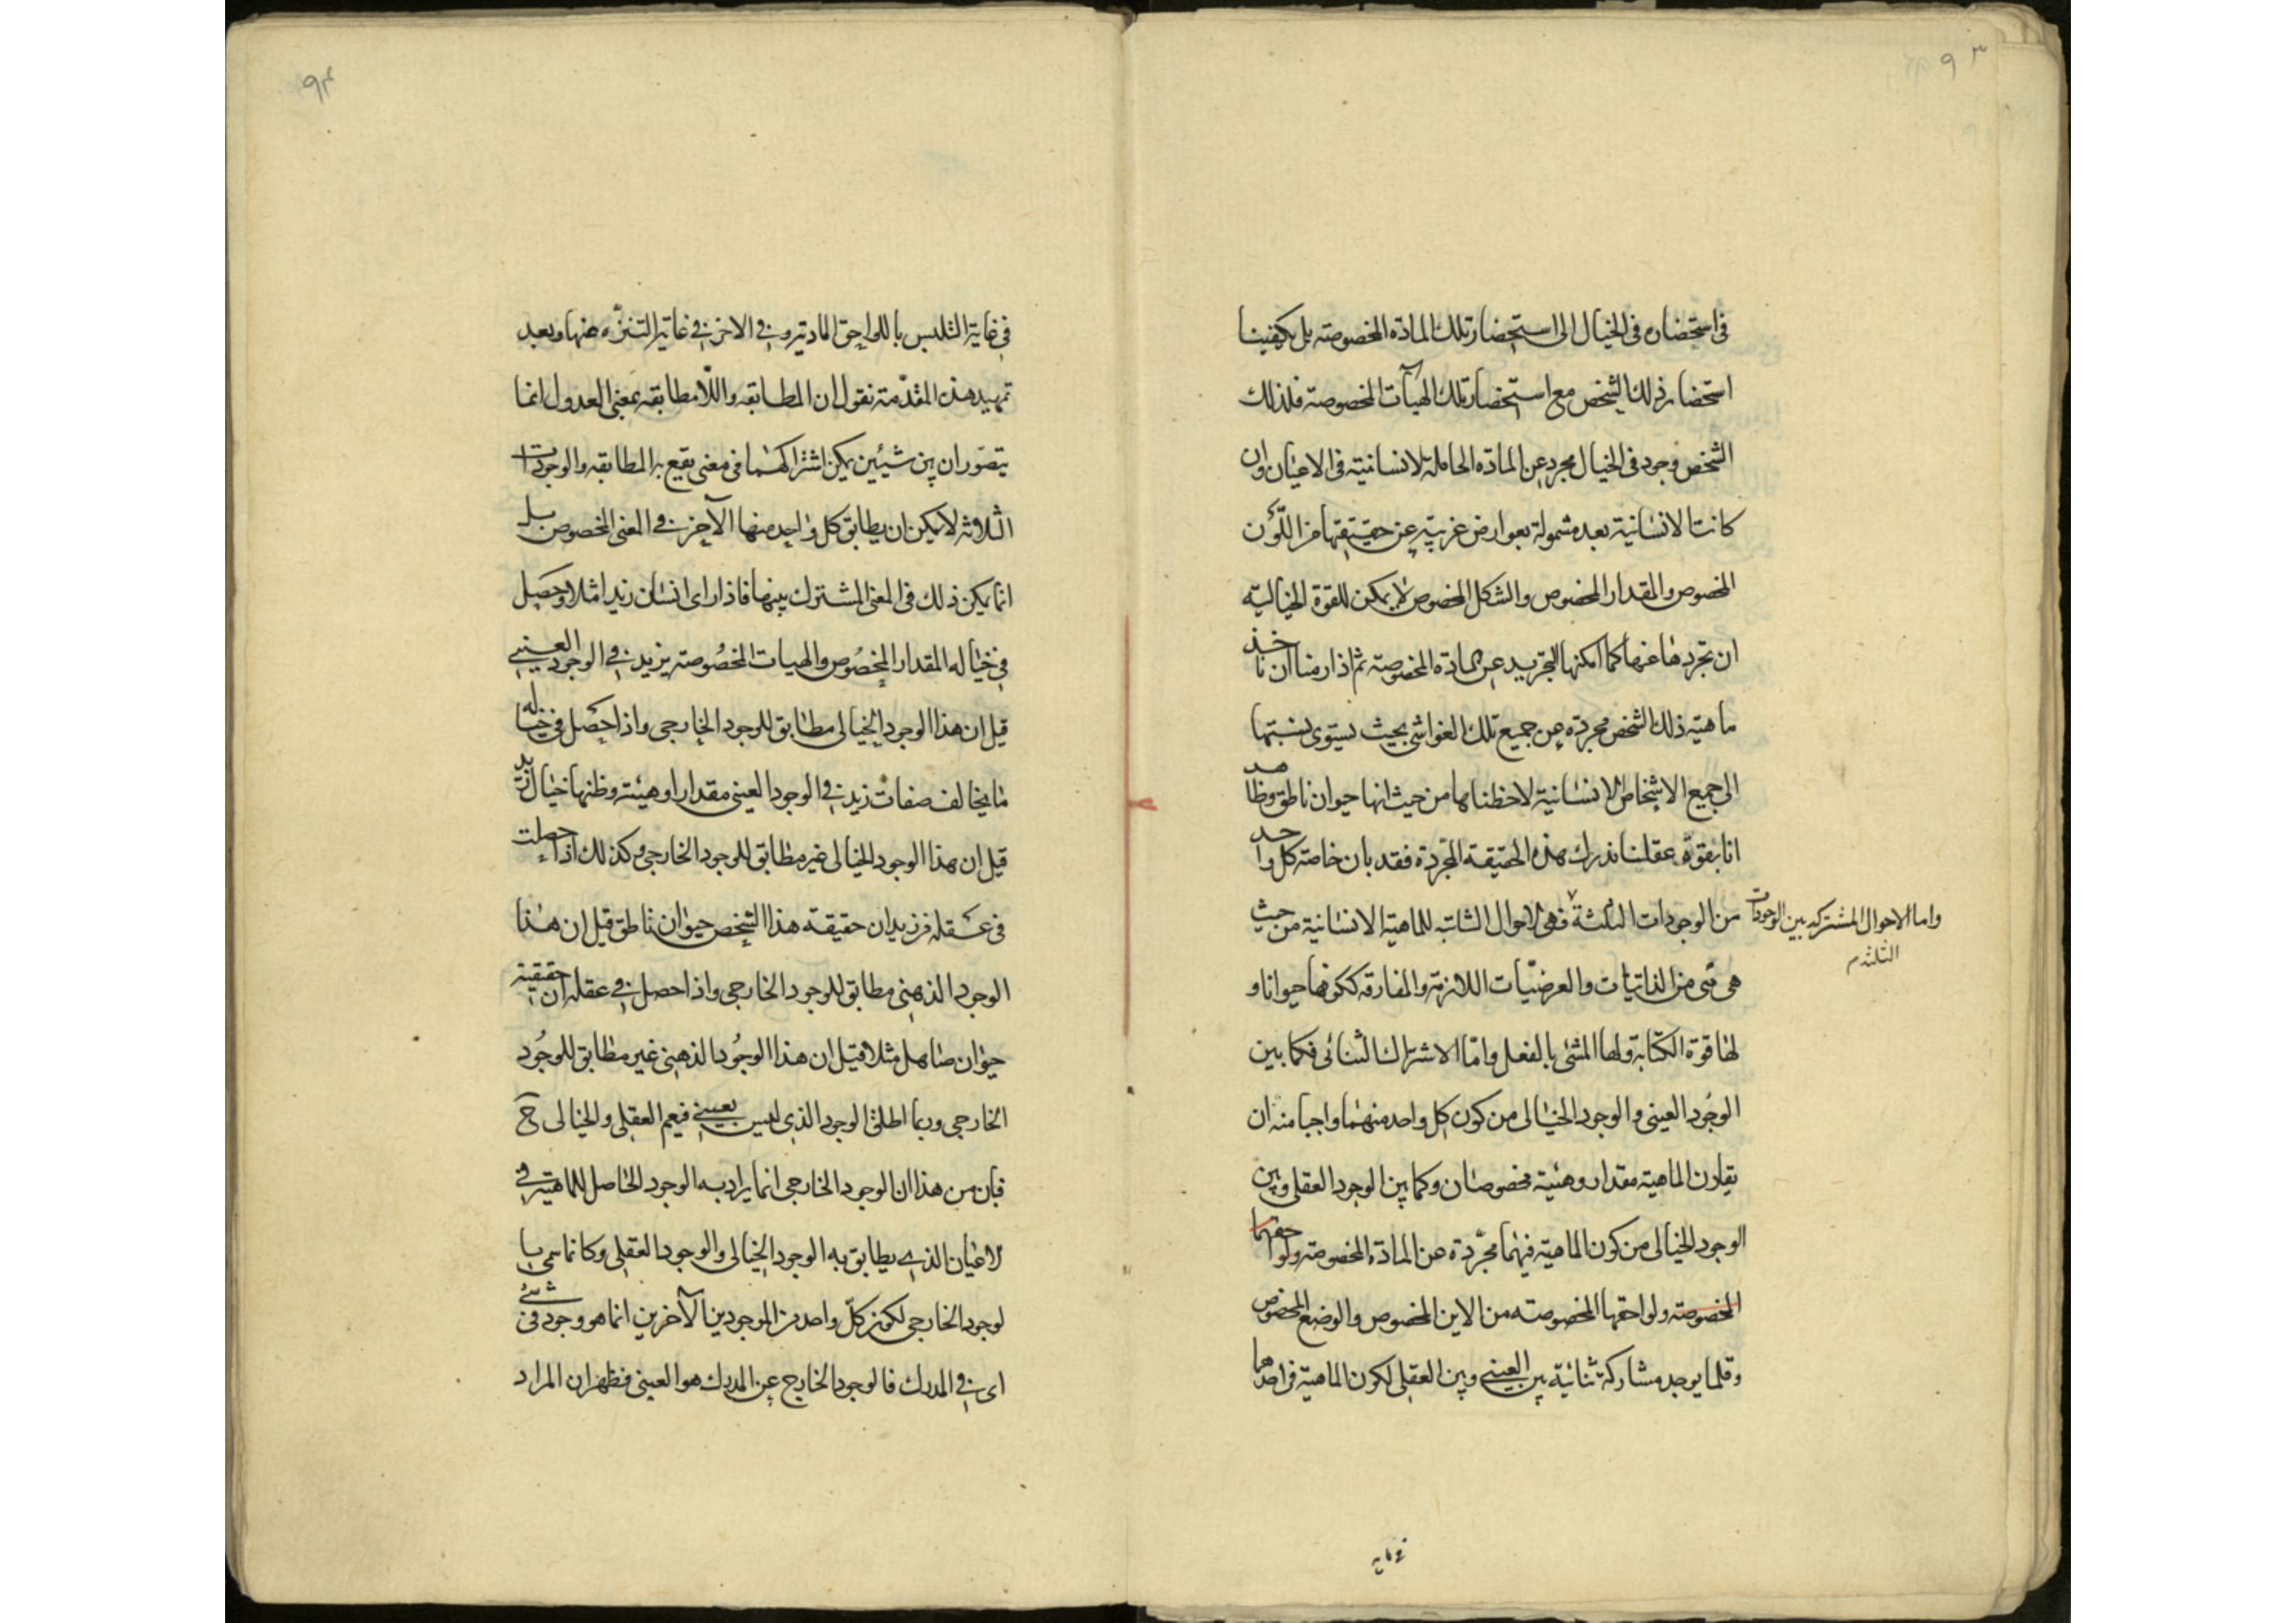 ٩٣
فى استحضاره فى الخيال الى استحضار تلك المادّه المخصوصته بل يكفينا
استحضار ذلك الشخص مع استحضار تلك الهيآت المخصوصة فلذلك
الشخص وجود فى الخيال مجرد عن المادّه الحاملة للانسانية فى الاعيان وان
كانت الانسانية بعد مشمولة بعوارض غريبة عن حقيقتها من اللّون
المخصوص والمقدار المخصوص والشكل المخصوص لا يمكن للقوة الخيالية
ان تجردها عنها كما امكنها التجريد عن المادة المخصوصة ثم اذا رمنا ان ناخذ
ماهية ذلك الشخص مجردة عن جميع تلك الغواشى بحيث يستوى نسبتها
الى جميع الاشخاص الانسانية لاحظناها من حيث انها حيوان ناطق وظاهر
انا بقوّة عقلنا ندرك هذه الحقيقة المجرّدة فقد بان خاصة كل واحد
من الوجودات الثلثة فهى الاحوال الثابتة للماهية الانسانية من حيث
واما الاحوال المشتركه بين الوجودات
الثلثة م
هى هى من الذاتيات والعرضيّات اللازمة والمفارقه ككونها حيوانا و
لها قوة الكتابة ولها المشى بالفعل وامّا الاشتراك الثنائى فكما بين
الوجود العينى والوجود الخيالى من كون كل واحد منهما واجبا منه ان
يقارن الماهية مقدار وهيئة مخصوصان وكما بين الوجود العقلى وبين
الوجود الخيالى من كون الماهية فيهما مجرّدة عن المادة المخصوصة ولواحقهما
المخصوصة ولواحقها المخصوصته من الاين المخصوص والوضع المخصوص
وقلما يوجد مشاركة ثنائية بين العينى وبين العقلى لكون الماهية فى احدهما
فى غاية
٩٤
فى غاية التلبس باللواحق المادية وفى الاخر فى غاية التنزّه عنها وبعد
تمهيد هذه المقدّمة نقول ان المطابقه واللّامطابقه بمعنى العدول انما
يتصوّران بين شيئين يمكن اشتراكهما فى معنى يقع به المطابقه والوجودات
الثلاثه لا يمكن ان يطابق كل واحد منها الآخر فى المعنى المخصوص بل
انما يكن ذلك فى المعنى المشترك بينها فاذا راى انسان زيدا مثلا وحصل
فى خياله المقدار المخصوص والهيات المخصوصة بزيد فى الوجود العينى
قيل ان هذا الوجود الخيالى مطابق للوجود الخارجى واذا حصل فى خياله
ما يخالف صفات زيد فى الوجود العينى مقدارا وهيئة وظنها خيال زيد
قيل ان هذا الوجود الخيالى غير مطابق للوجود الخارجى وكذلك اذا حصلت
فى عقله من زيد ان حقيقة هذا الشخص حيوان ناطق قيل ان هذا
الوجود الذهنى مطابق للوجود الخارجى واذا حصل فى عقله ان حقيقته
حيوان صاهل مثلا قيل ان هذا الوجود الذهنى غير مطابق للوجود
الخارجى وربما اطلق الوجود الذى ليس بعينى فيعم العقلى والخيالى ح
فبان من هذا ان الوجود الخارجى انما يراد به الوجود الحاصل للماهية فى
لاعيان الذى يطابق به الوجود الخيالى والوجود العقلى وكانما سمى با
لوجود الخارجى لكون كلّ واحد من الموجودين الآخرين انما هو وجود فى شئ
اى فى المدرك فالوجود الخارج عن المدرك هو العينى فظهر ان المراد